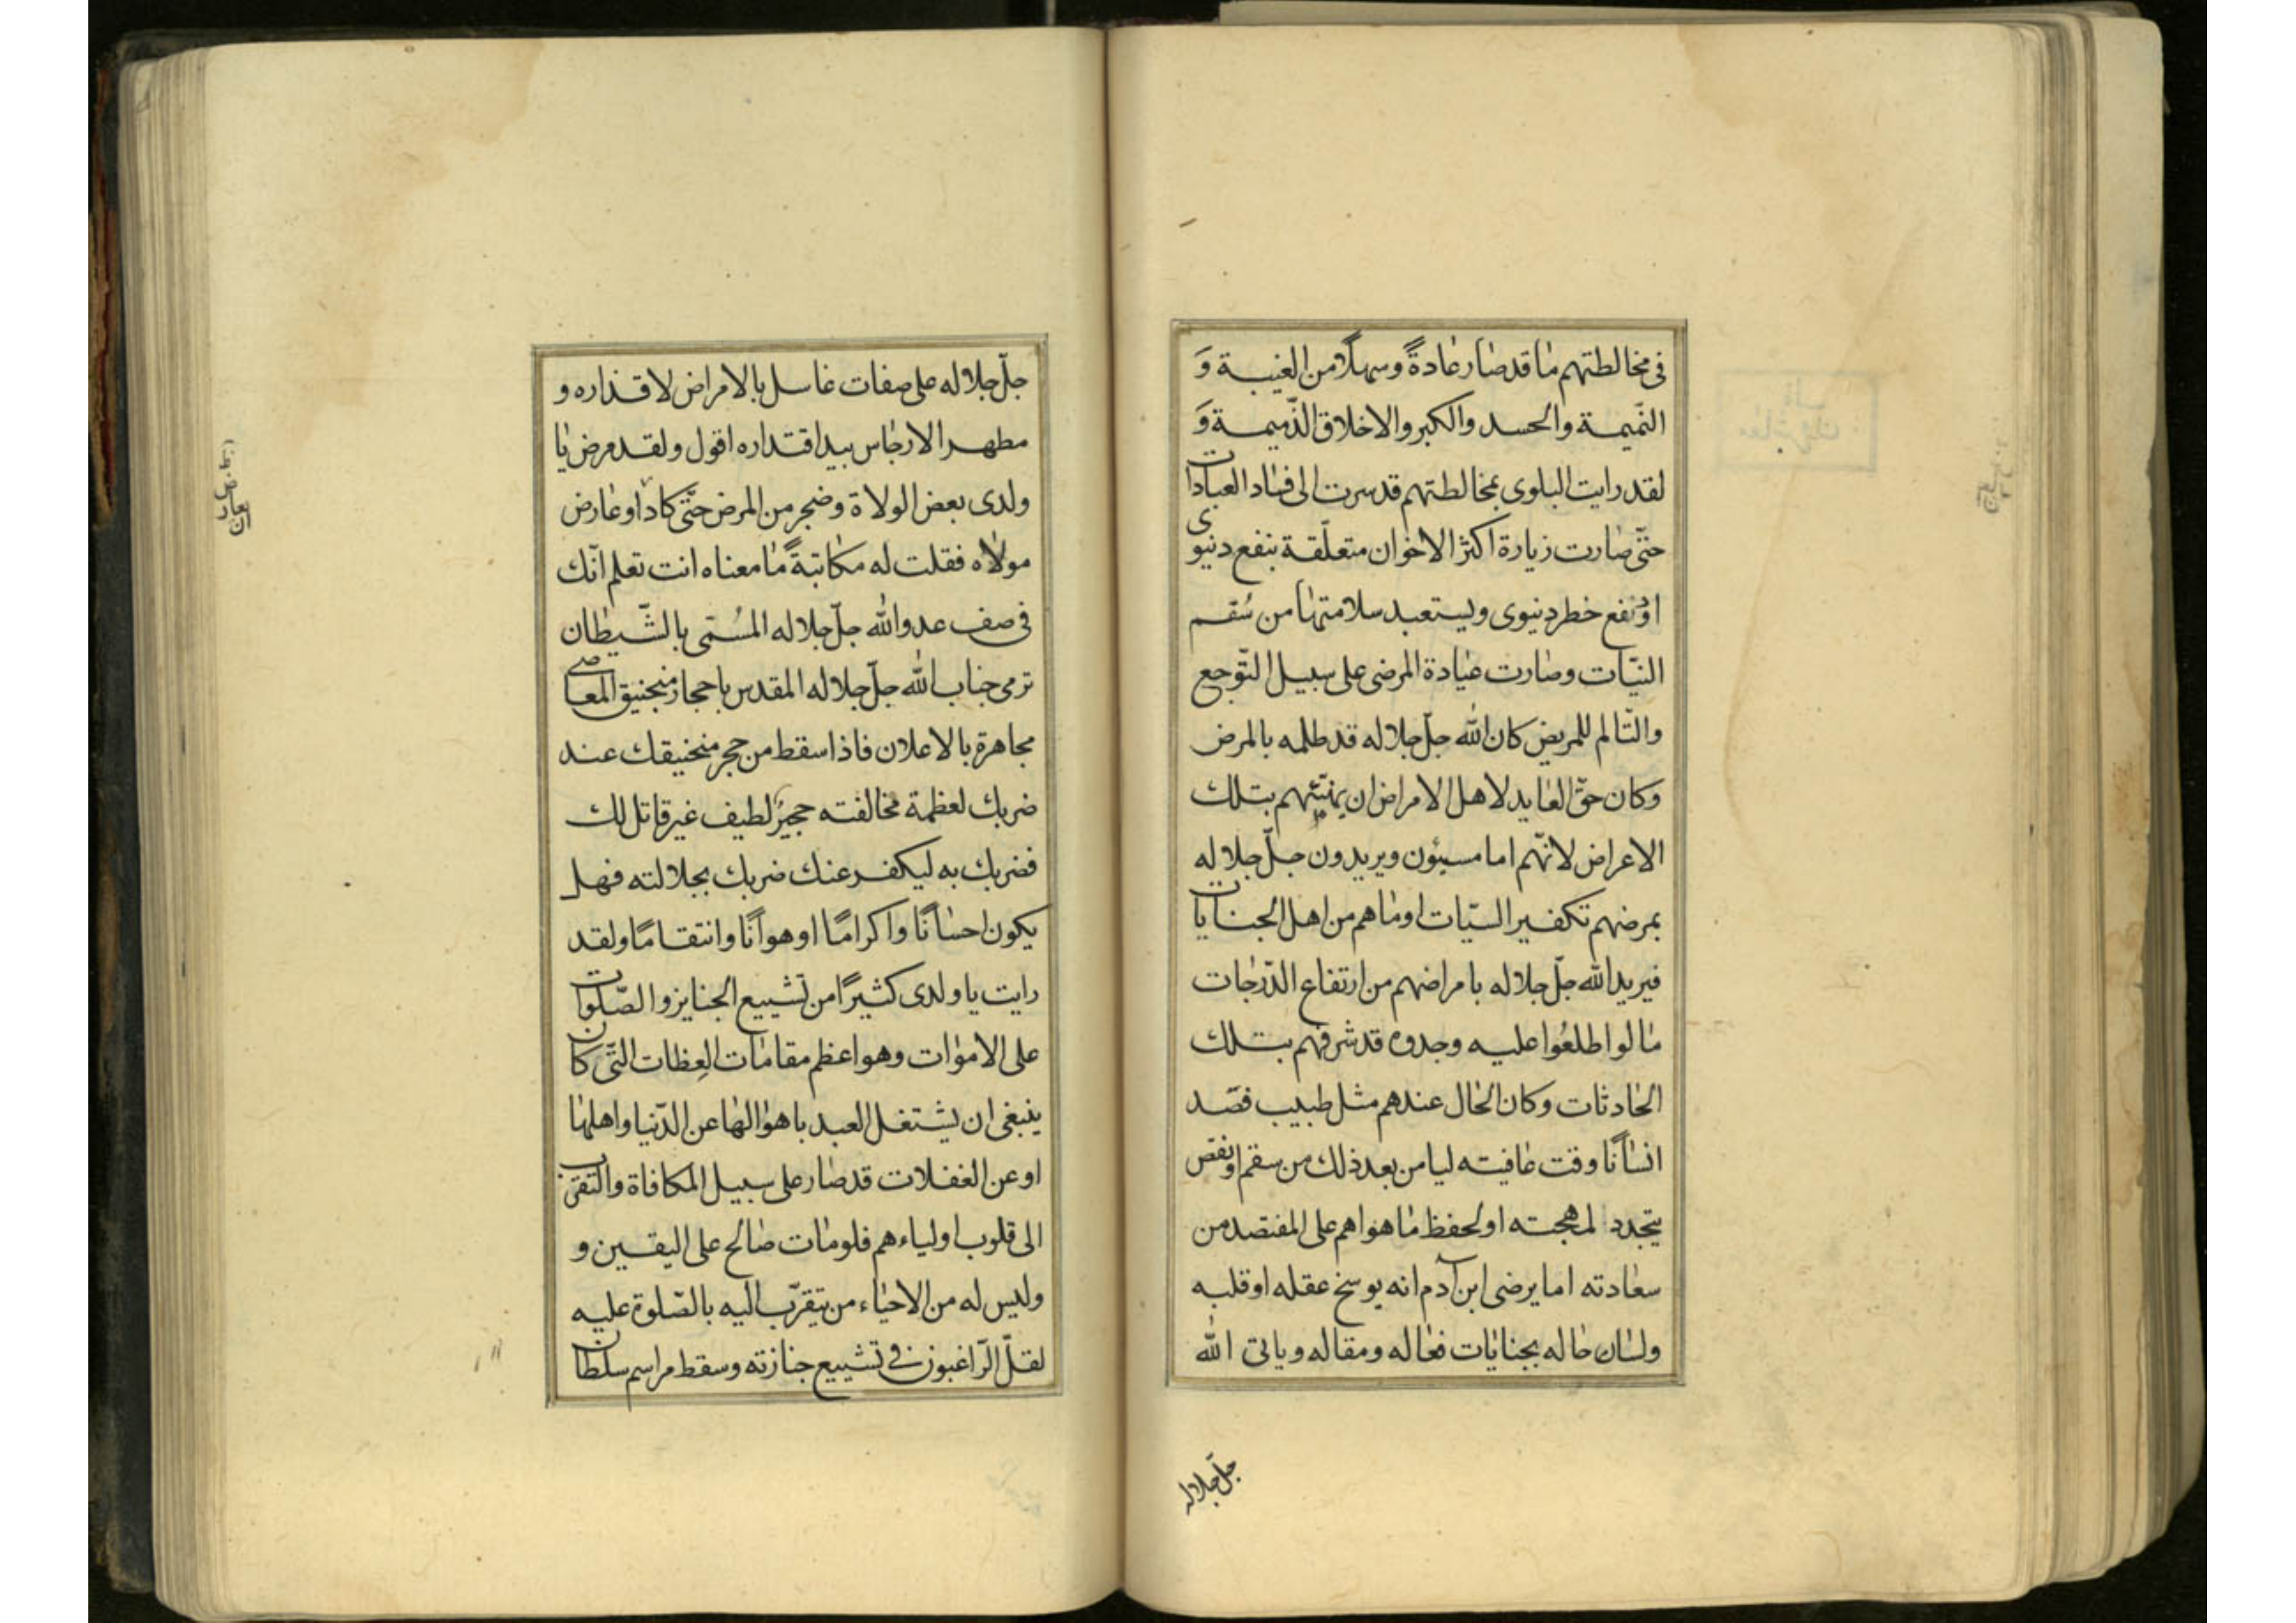 فى مخالطتهم ما قد صار عادةً وسهلًا من الغيبة وَ
النّميمة والحسد والكبر والاخلاق الذّميمة وَ
لقد رايت البلوى بمخالطتهم قد سرت الى فساد العبادات
حتّى صارت زيارة اكثر الاخوان متعلّقة بنفع دنيوى
او دفع خطر دنيوى ويستعبد سلامتها من سُقم
النيّات وصارت عيادة المرضى على سبيل التّوجع
والتّالم للمريض كان الله جلّ جلاله قد ظلمه بالمرض
وكان حقّ العايد لاهل الامراض ان يهنّيهم بتلك
الاعراض لانّهم اما مسيئون ويريدون جلّ جلاله
بمرضهم تكفير السيّات او ما هم من اهل الجنايات
فيريد الله جلّ جلاله بامراضهم من ارتفاع الدّرجات
ما لو اطلعُوا عليه وجدوه قد شرفهم بتلك
الحادثات وكان الحال عندهم مثل طبيب فصّد
انسانًا وقت عافيته ليامن بعد ذلك من سقم او نقص
يتجدد لمهجته او لحفظ ما هو اهم على المفتصد من
سعادته اما يرضى ابن آدم انه يوسخ عقله او قلبه
ولسان حاله بجنايات فعاله ومقاله وياتى الله
جلّ جلاله
جلّ جلاله على صفات غاسل بالامراض لاقذاره و
مطهر الارجاس بيد اقتداره اقول ولقد مرض يا
ولدى بعض الولاة وضجر من المرض حتّى كاد او عارض
مولاه فقلت له مكاتبةً ما معناه انت تعلم انّك
فى صف عدو الله جلّ جلاله المسُمّى بالشّيطان
ترمى جناب الله جلّ جلاله المقدس باحجار منجنيق المعاصى
مجاهرة بالاعلان فاذا سقط من حجر منجنيقك عند
ضربك لعظمة مخالفته حجيرُ لطيف غير قاتل لك
فضربك به ليكفر عنك ضربك بجلالته فهل
يكون احسانًا واكرامًا او هوانًا وانتقامًا ولقد
رايت يا ولدى كثيرًا من تشييع الجنايز والصّلوات
على الاموات وهو اعظم مقامات العِظات التّى كان
ينبغى ان يشتغل العبد باهوالها عن الدّنيا واهلها
او عن الغفلات قد صار على سبيل المكافاة والتقرّب
الى قلوب اولياءهم فلو مات صالح على اليقين و
وليس له من الاحياء من يتقرّب اليه بالصّلوة عليه
لقلّ الرّاغبون فى تشييع جنازته وسقط مراسم سلطان